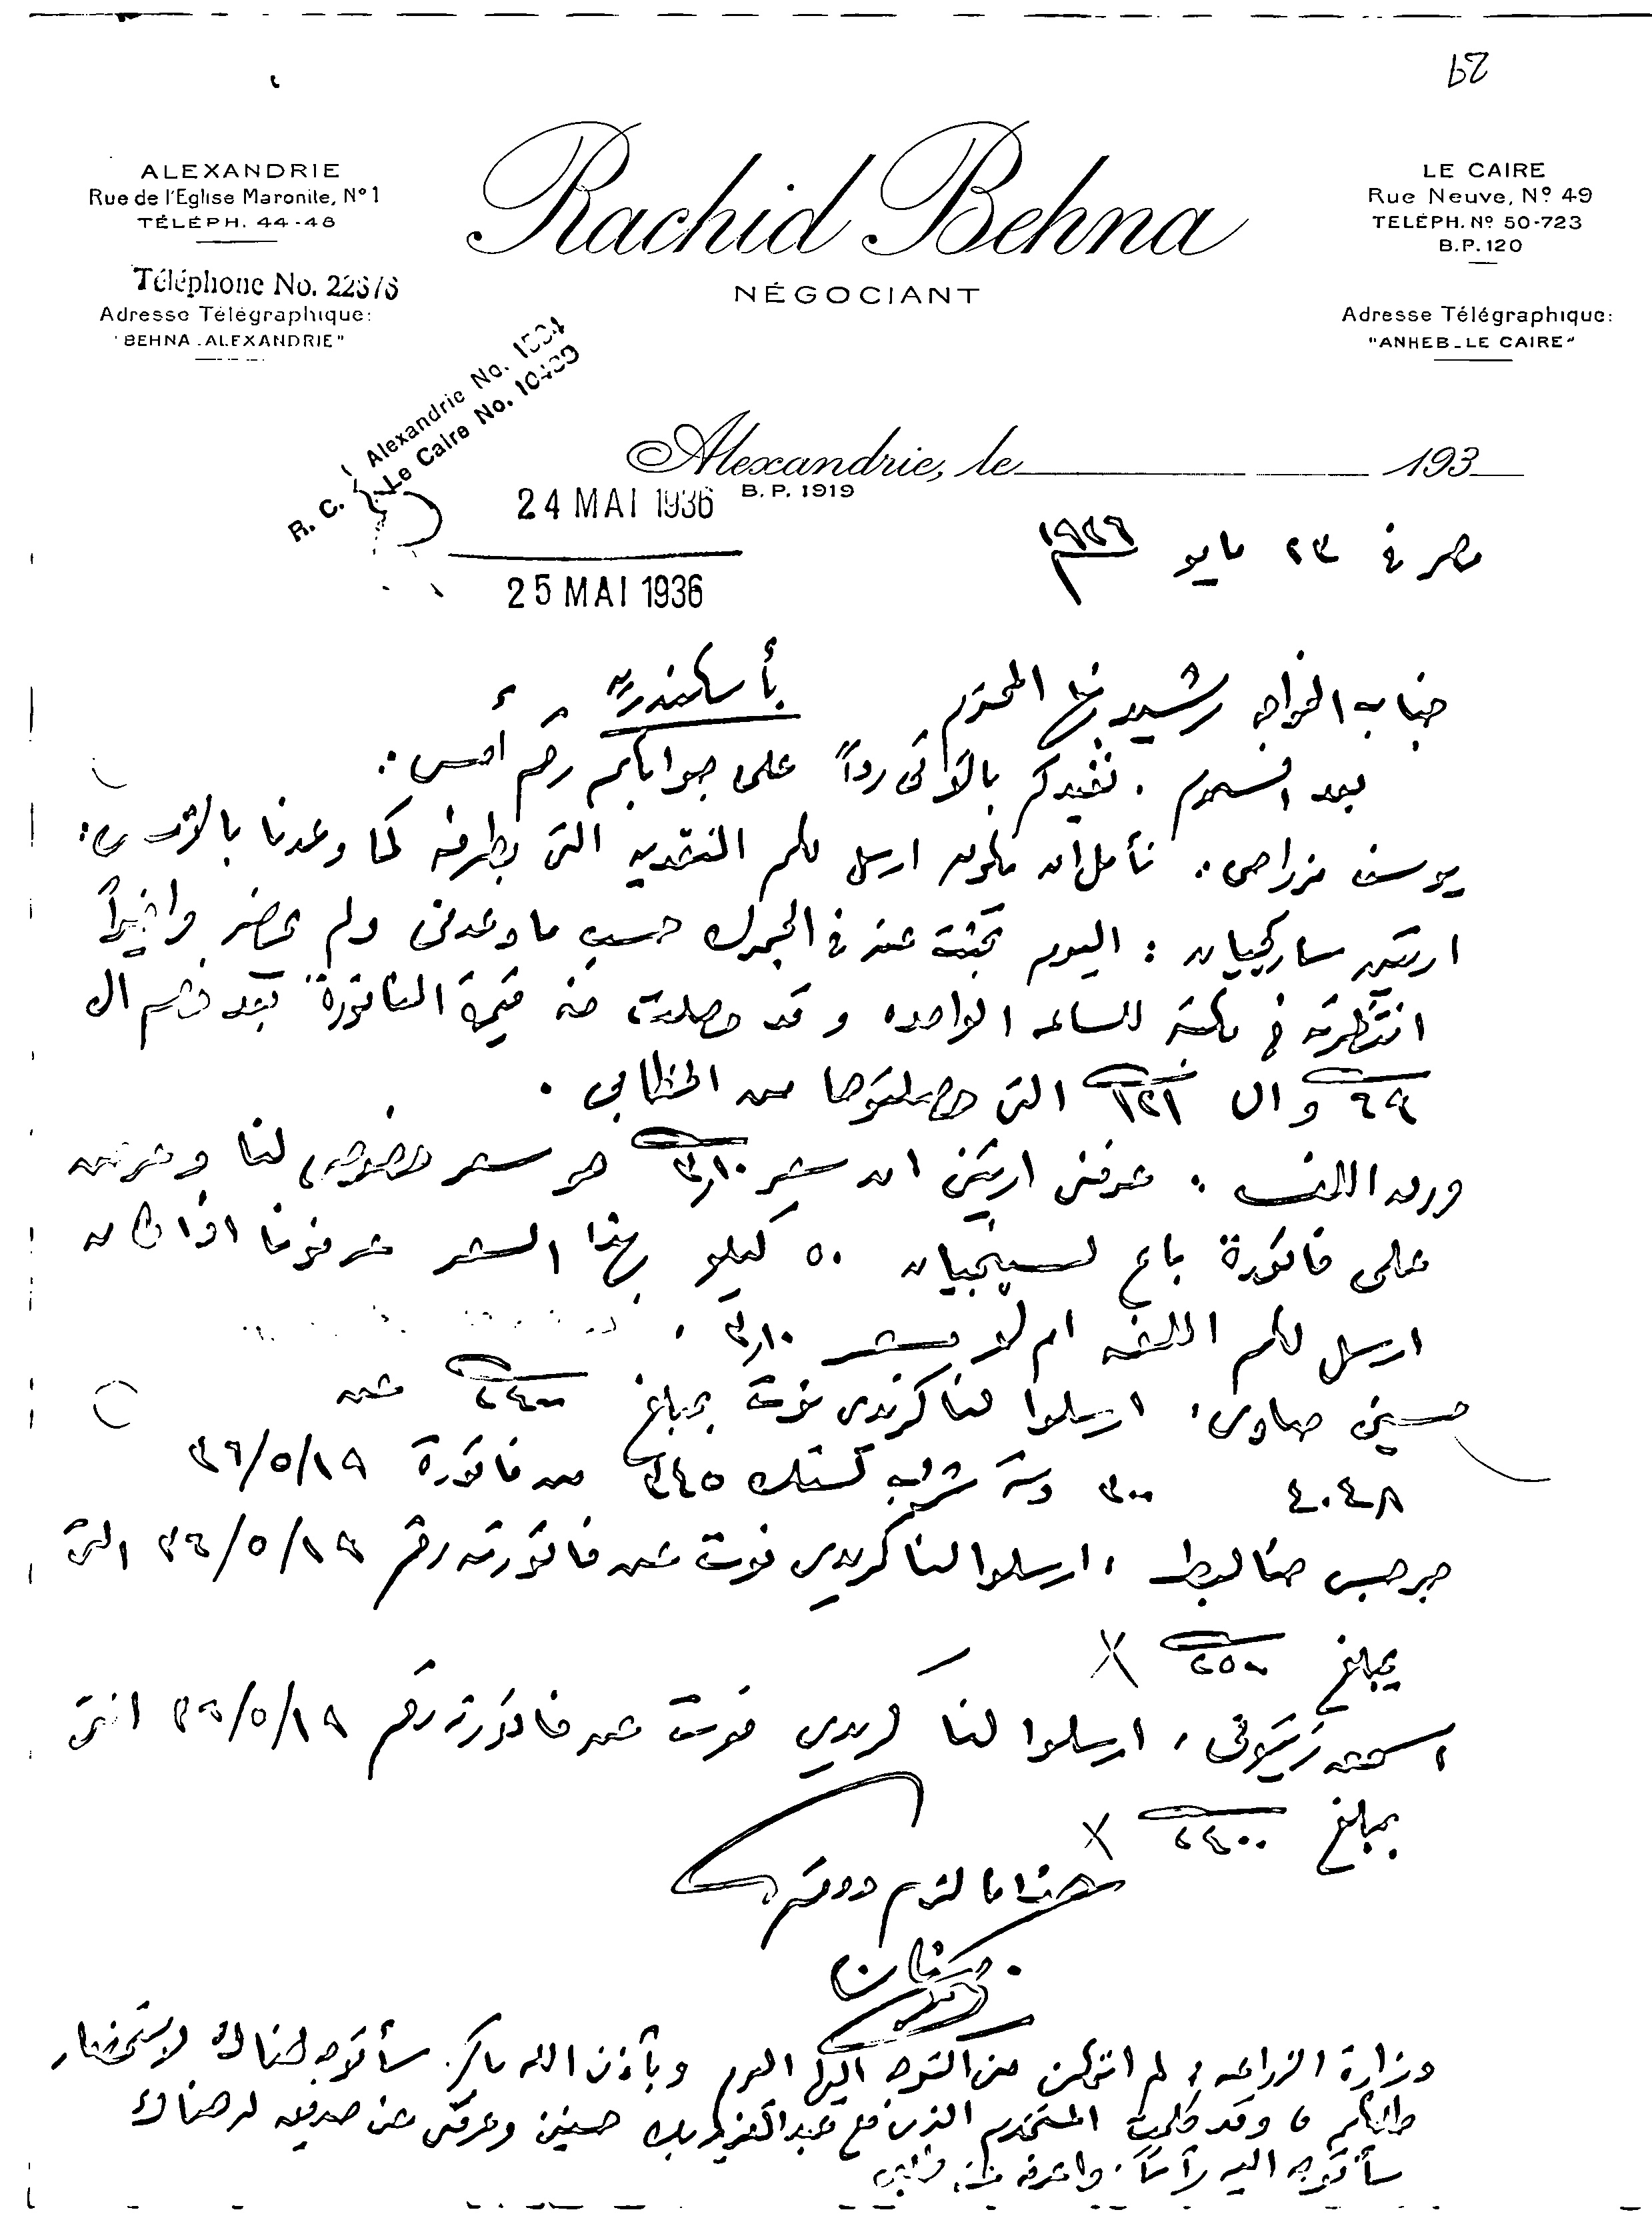 29
ALEXANDRIE
Rue de l'Eglise Maronite, N° 1
TÉLÉPH. 44-48
Téléphone No. 22676
Adresse Télégraphique:
"BEHNA - ALEXANDRIE"
Rachid Behna
NÉGOCIANT
LE CAIRE
Rue Neuve, N° 49
TELÉPH. N° 50-723
B.P. 120
Adresse Télégraphique:
"ANHEB - LE CAIRE"
R. C. { Alexandrie No.
Le Caire No.
Alexandrie, le 193
B. P. 1919
24 MAI 1936
25 MAI 1936
مصر في ٢٣ مايو ١٩٣٦
جناب الخواجه رشيد بهنا المحترم بأسكندرية
بعد السلام . نفيدكم بالآتى رداً على جوابكم رقم أمس :
يوسف مزراحى . نأمل ان يكون ارسل لكم النقديه التى بطرفه كما وعدنا بالأمس :
ارتين ساركيان : اليوم بحثت عنه في الجمرك حسب ما وعدنى ولم يحضر واخيراً
انتظرته في مكتبه للساعه الواحده وقد حصلت منه قيمة الفاتورة بعد خصم ال
٦٩ وال ١٢١ التى حصلتوها من الخطابى .
ورق اللف . عرفنى ارتين ان سعر ٣،١٠ هو سعر خصوصى لنا
على فاتورة باع ٥٠ كيلو بهذا السعر عرفونا اذا كان
ارسل لكم اللفه ام لا بسعر ٣،١٠ .
حسين صاوى . ارسلوا لنا كريدى نوت بمبلغ ٢٤٠٠ عن
٤٠٤٨ ٣٠٠ دستة شراب ٣٤٥ من فاتورة ٣٦/٥/١٩
جرجس حنا ارسلوا لنا كريدى نوت عن فاتورته رقم ٣٦/٥/١٩ التى
بمبلغ ٢٥٠٠ X
زيتونى . ارسلوا لنا كريدى نوت عن فاتورته رقم ٣٦/٥/١٩
بمبلغ ٢٤٠٠ X
هذا ما لزم ودمتم
وزارة الزراعه . لم اتمكن من التوجه اليها اليوم وبأذن الله باكر سأتوجه هناك لاستحضار
طلبكم وقد كلمت المستخدم الذى مع عبد العزيز بك حسنين وعرفنى عن صديق له هناك
سأتوجه اليه رأساً